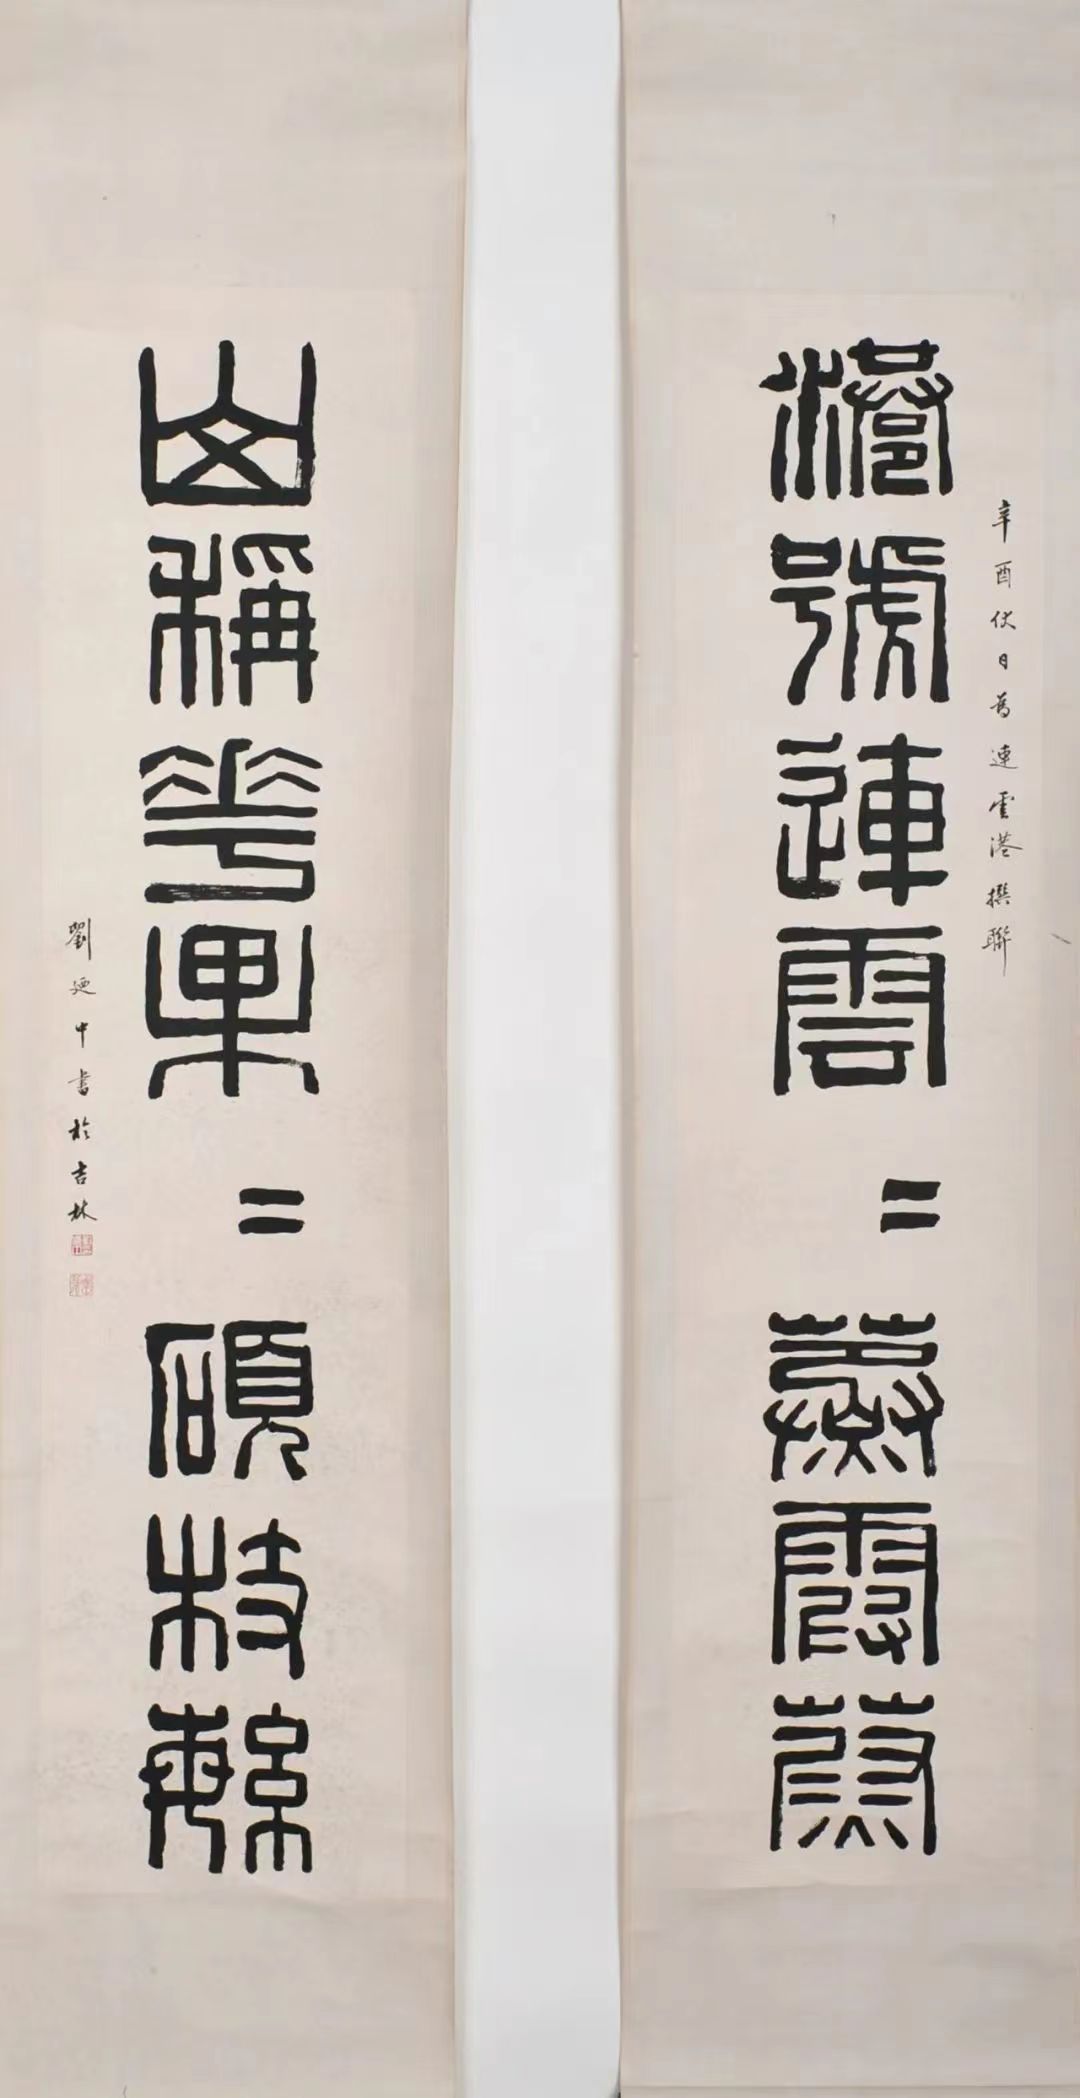 辛酉伏日為連雲港撰聯
港號連雲〓蒸霞蔚
山稱華果〓碩枝緐
劉廼中書於吉林